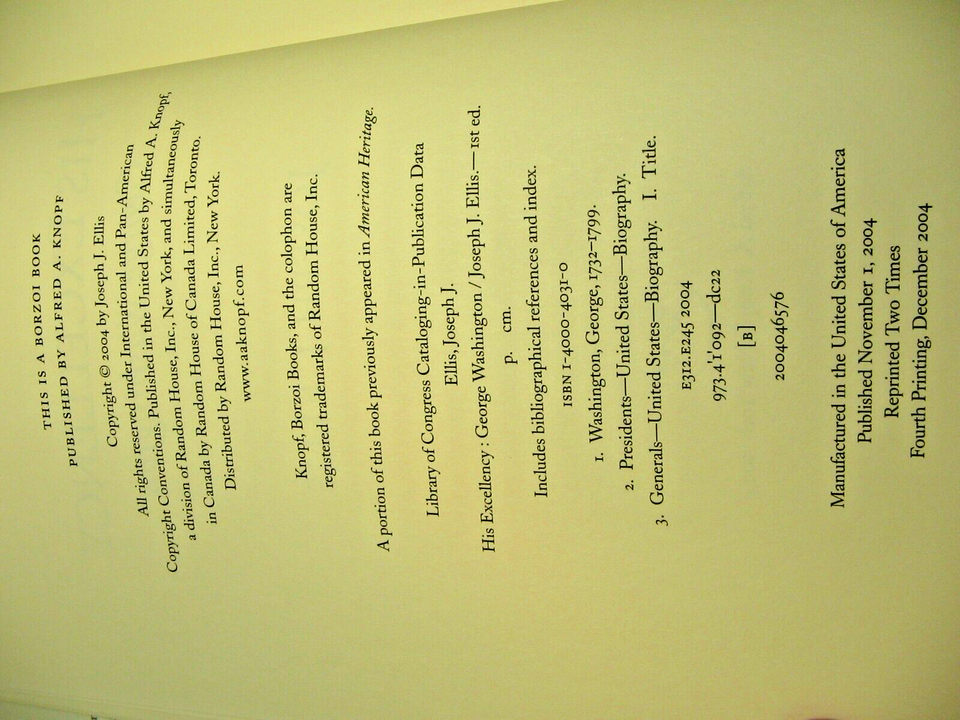 THIS IS A BORZOI BOOK
PUBLISHED BY ALFRED A. KNOPF
Copyright © 2004 by Joseph J. Ellis
All rights reserved under International and Pan-American
Copyright Conventions. Published in the United States by Alfred A. Knopf,
a division of Random House, Inc., New York, and simultaneously
in Canada by Random House of Canada Limited, Toronto.
Distributed by Random House, Inc., New York.
www.aaknopf.com
Knopf, Borzoi Books, and the colophon are
registered trademarks of Random House, Inc.
A portion of this book previously appeared in American Heritage.
Library of Congress Cataloging-in-Publication Data
Ellis, Joseph J.
His Excellency : George Washington / Joseph J. Ellis.—1st ed.
p. cm.
Includes bibliographical references and index.
ISBN 1-4000-4031-0
1. Washington, George, 1732–1799.
2. Presidents—United States—Biography.
3. Generals—United States—Biography. I. Title.
E312.E245 2004
973.4'1'092—dc22
[B]
2004046576
Manufactured in the United States of America
Published November 1, 2004
Reprinted Two Times
Fourth Printing, December 2004